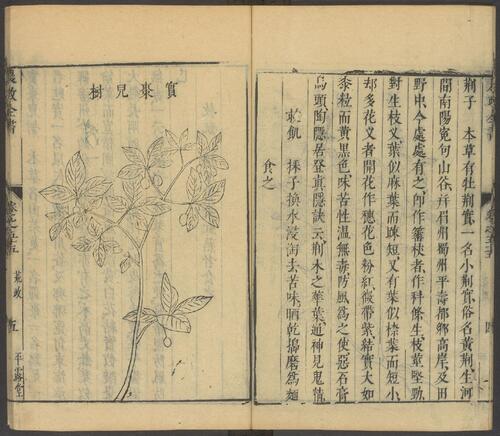 荊子 本草有牡荊實一名小荊實俗名黃荊生河
間南陽冤句山谷幷眉州蜀州平壽都鄉高岸及田
野中今處處有之卽作箠杖者作科條生枝莖堅勁
對生枝叉葉似麻葉而疎短又有葉似㯶葉而短小
却多花叉者開花作穗花色粉紅微帶紫結實大如
黍粒而黃黑色味苦性溫無毒防風爲之使惡石膏
烏頭陶隱居登真隱訣云荊木之華葉通神見鬼精
救飢 採子換水浸淘去苦味晒乾搗磨爲麵
食之
實棗兒樹
農政全書
荒政
五
平露堂